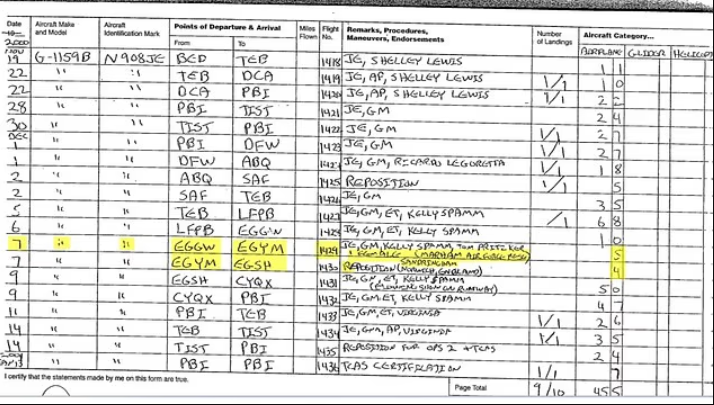 Date Aircraft Make and Model Aircraft Identification Mark Points of Departure & Arrival From To Miles Flown Flight No. Remarks, Procedures, Maneuvers, Endorsements Number of Landings Aircraft Category... AIRPLANE GLIDER
2000
NOV
19 G-1159B N908JE BED TEB 1418 JE, SHELLEY LEWIS 1 1
22 " " TEB DCA 1419 JE, AP, SHELLEY LEWIS 1/1 1 0
22 " " DCA PBI 1420 JE, AP, SHELLEY LEWIS 1/1 2 2
28 " " PBI TIST 1421 JE, GM 2 4
30 " " TIST PBI 1422 JE, GM 1/1 2 7
DEC
1 " " PBI DFW 1423 JE, GM 1/1 2 7
1 " " DFW ABQ JE, GM, RICARDO LEGORETTA 1/1 1 8
2 " " ABQ SAF 1425 REPOSITION 1/1 5
2 " " SAF TEB 1426 JE, GM 3 5
5 " " TEB LFPB 1427 JE, GM, ET, KELLY SPAMM /1 6 8
6 " " LFPB EGGW 1428 JE, GM, ET, KELLY SPAMM 1 0
7 " " EGGW EGYM 1429 JE, GM, KELLY SPAMM, TOM PRITZKER
+ 1 FEMALE (MARHAM AIR FORCE BASE) 5
SANDRINGHAM
7 " " EGYM EGSH 1430 REPOSITION (NORWICH, ENGLAND) 4
9 " " EGSH CYQX 1431 JE, GM, ET, KELLY SPAMM 5 0
9 " " CYQX PBI 1432 JE, GM, ET, KELLY SPAMM 4 7
11 " " PBI TEB 1433 JE, GM, ET, VIRGINIA 1/1 2 6
14 " " TEB TIST 1434 JE, GM, AP, VIRGINIA 1/1 3 5
14 " " TIST PBI 1435 REPOSITION FOR OPS 2 + TCAS 2 4
13 " " PBI PBI 1436 TCAS CERTIFICATION 1/1 7
I certify that the statements made by me on this form are true.
Page Total 9/10 45 5